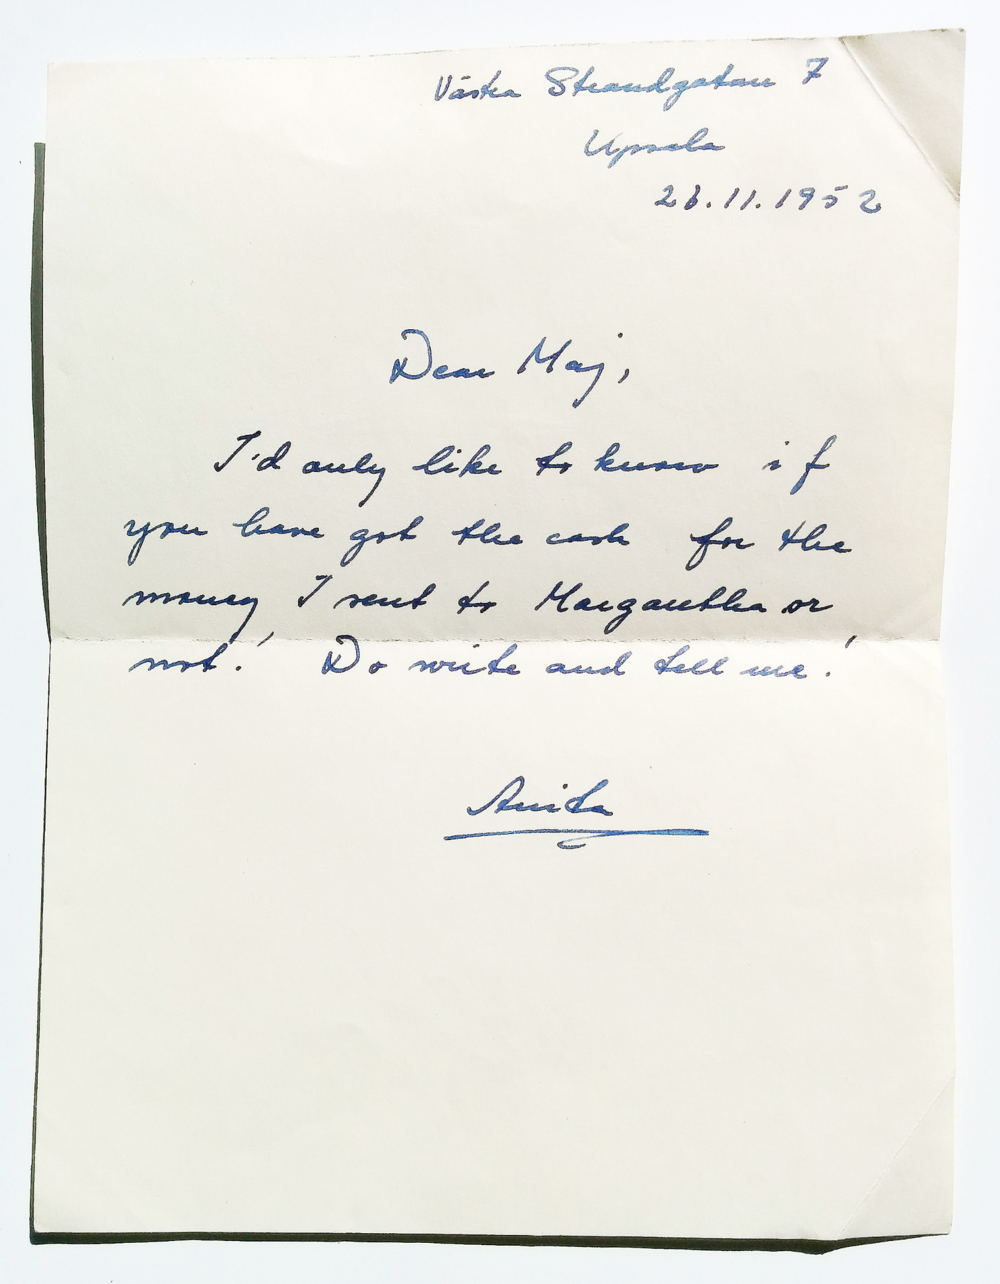 Västra Strandgatan 7
Upsala
26.11.1952
Dear Maj,
I'd only like to know if
you have got the cash for the
money I sent to Margaretha or
not! Do write and tell me!
Anita